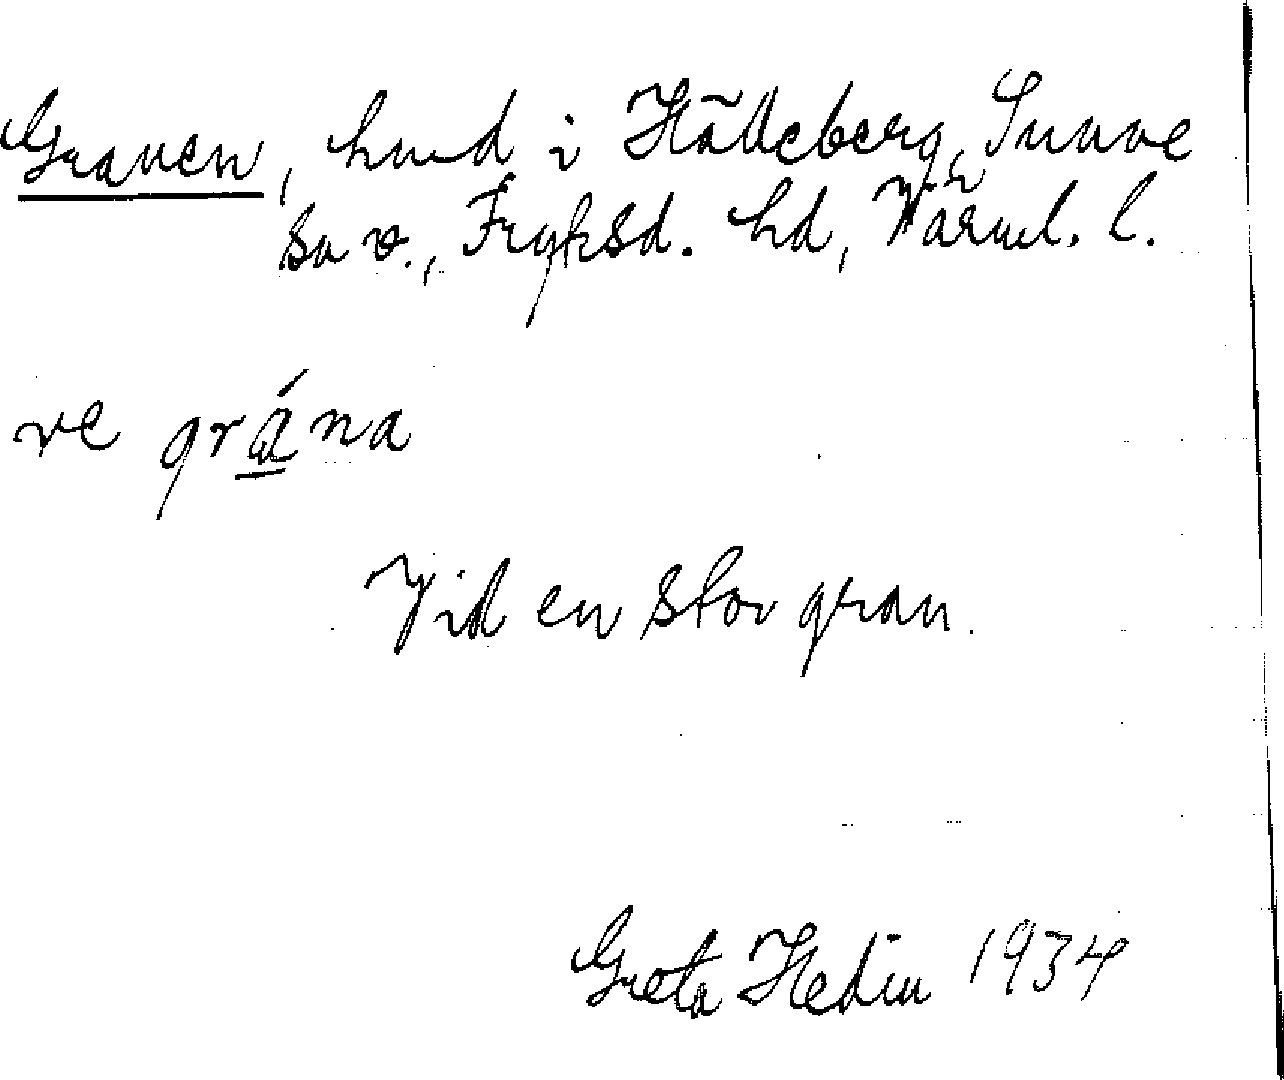 Granen, hmd i Hälleberg, Sunne
sn v., Fryksd. hd, Värml. l.
ve grána
Vid en stor gran.
Greta Hedin 1934